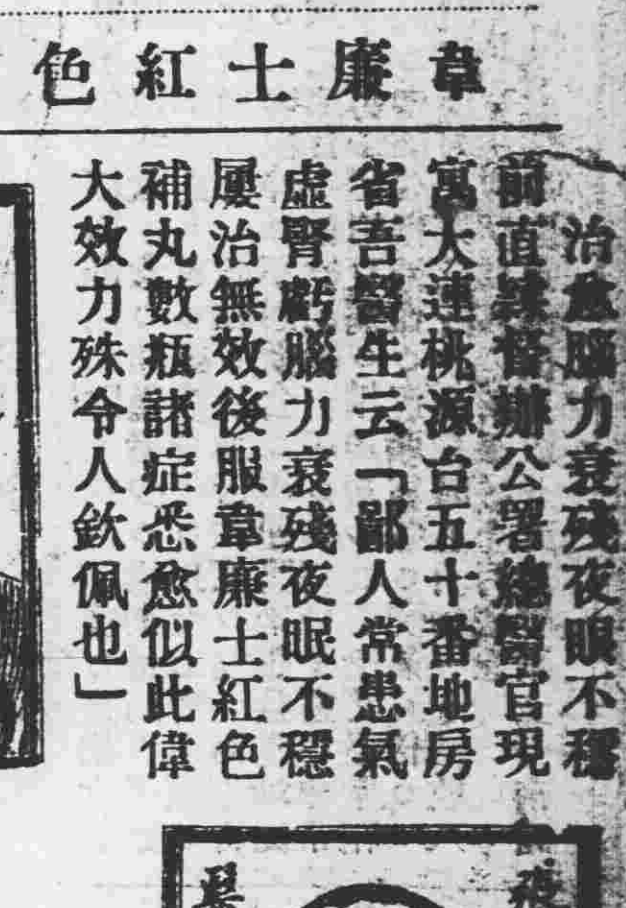 韋廉士紅色
治愈腦力衰殘夜眠不穩
前直隸督辦公署總醫官現
寓大連桃源台五十番地房
省吾醫生云「鄙人常患氣
虛腎虧腦力衰殘夜眠不穩
屢治無效後服韋廉士紅色
補丸數瓶諸症悉愈似此偉
大效力殊令人欽佩也」